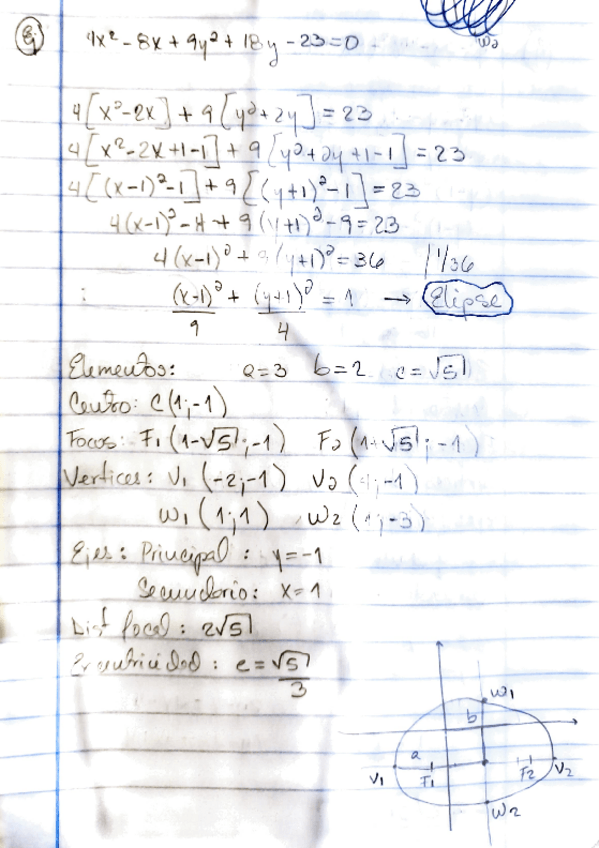 Ej 4x² - 8x + 9y² + 18y - 23 = 0
4[x² - 2x] + 9[y² + 2y] = 23
4[x² - 2x + 1 - 1] + 9[y² + 2y + 1 - 1] = 23
4[(x-1)² - 1] + 9[(y+1)² - 1] = 23
4(x-1)² - 4 + 9(y+1)² - 9 = 23
4(x-1)² + 9(y+1)² = 36 | 1/36
: (x-1)²/9 + (y+1)²/4 = 1 → Elipse
Elementos: a=3 b=2 c=√5
Centro: C(1;-1)
Focos: F1(1-√5;-1) F2(1+√5;-1)
Vertices: V1(-2;-1) V2(4;-1)
W1(1;1) W2(1;-3)
Ejes: Principal: y=-1
Secundario: x=1
Dist focal: 2√5
Excentricidad: e=√5/3
W1
b
a
V1 F1 F2 V2
W2